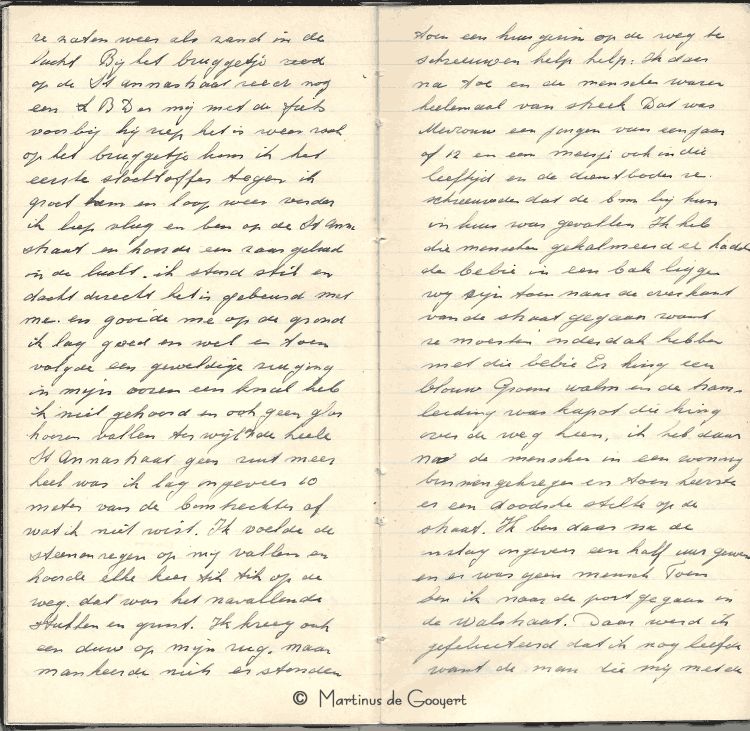 ze zaten weer als zand in de
lucht Bij het bruggetje reed
op de St annastraat reed er nog
een L B D er mij met de fiets
voorbij hij riep het is weer raak.
op het bruggetje kwam ik het
eerste slachtoffer tegen ik
groet hem en loop weer verder
ik liep vlug en ben op de St Anna
straat en hoorde een raar geluid
in de lucht. ik stond stil en
dacht direct het is gebeurd met
me. en gooide me op de grond
ik lag goed en wel en toen
volgde een geweldige zuiging
in mijn ooren een knal heb
ik niet gehoord en ook geen glas
hooren vallen terwijl in de heele
St Annastraat geen ruit meer
heel was ik lag ongeveer 10
meter van de bomtrechter af
wat ik niet wist. Ik voelde de
steenenregen op mij vallen en
hoorde elke keer tik tik op de
weg. dat was het navallende
stukken en gruis. Ik kreeg ook
een duw op mijn rug. maar
mankeerde niets er stonden
toen een huisgezin op de weg te
schreeuwen help help. Ik daar
na toe en de menschen waren
heelemaal van streek Dat was
Mevrouw een jongen van een jaar
of 12 en een meisje ook in die
leeftijd en de dienstbode ze.
schreeuwden dat de bom bij hun
in huis was gevallen Ik heb
die menschen gekalmeerd ze hadden
de bebie in een bak liggen
wij zijn toen naar de overkant
van de straat gegaan want
ze moesten onderdak hebben
met die bebie Er hing een
blauw Groene walm en de tram-
leiding was kapot die hing
over de weg heen, ik heb daar
na de menschen in een woning
binnen gekregen en toen heerste
er een doodsche stilte op de
straat. Ik ben daar na de
inslag ongeveer een half uur geweest
en er was geen mensch Toen
ben ik naar de post gegaan in
de Walstraat. Daar werd ik
gefeliciteerd dat ik nog leefde
want de man die mij met de
© Martinus de Gooyert